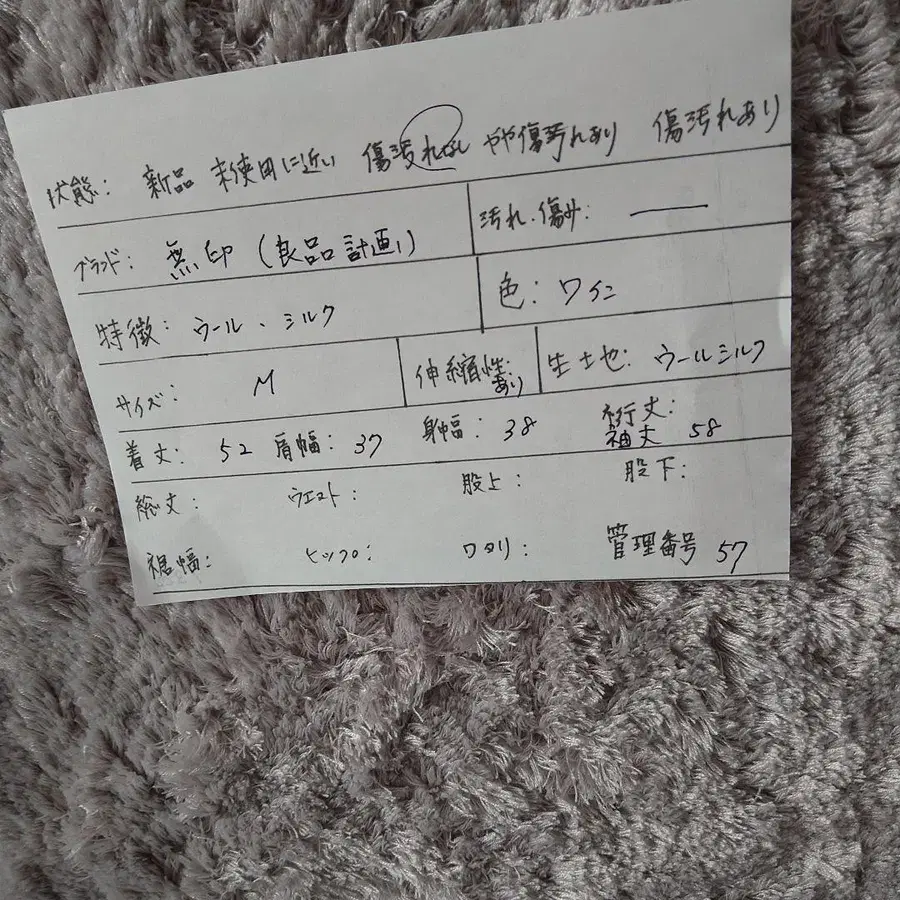 状態: 新品 未使用に近い 傷汚れなし やや傷汚れあり 傷汚れあり
ブランド: 無印(良品計画) 汚れ・傷み: ―
特徴: ウール、シルク 色: ワイン
サイズ: M 伸縮性: あり 生地: ウールシルク
着丈: 52 肩幅: 37 身幅: 38 裄丈:
袖丈 58
総丈: ウエスト: 股上: 股下:
裾幅: ヒップ: ワタリ: 管理番号 57